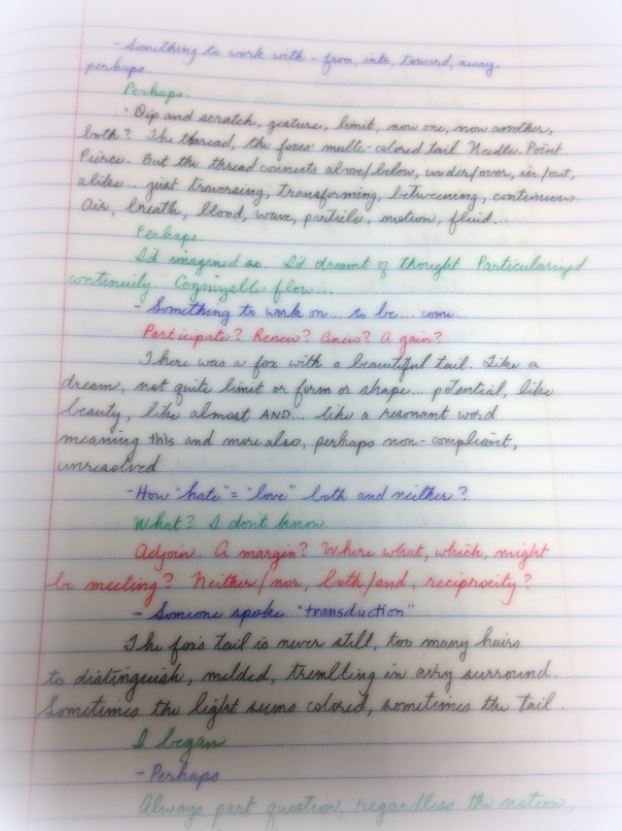 - Something to work with - from, into, toward, away.
perhaps.
Perhaps.
· Dip and scratch, gesture, limit, now one, now another,
both? The thread, the foxes' multi-colored tail. Needle. Point.
Pierce. But the thread connects above/below, under/over, in/out,
alike... just traversing, transforming, betweening, continuous.
Air, breath, blood, wave, particle, motion, fluid...
Perhaps.
I'd imagined so. I'd dreamt of thought. Particularized
continuity. Cognizable flow...
- Something to work on... to be... come...
Participate? Renew? Anew? A gain?
There was a fox with a beautiful tail. Like a
dream, not quite limit or form or shape... potential, like
beauty, like almost AND... like a resonant word
meaning this and more also, perhaps non-compliant,
unresolved
- How "hate" = "love" both and neither?
What? I don't know
Adjoin. A margin? Where what, which, might
be meeting? Neither/nor, both/and, reciprocity?
- Someone spoke "transduction"
The fox's tail is never still, too many hairs
to distinguish, melded, trembling in airy surround.
Sometimes the light seems colored, sometimes the tail.
I began
- Perhaps
Always part question, regardless the notion,